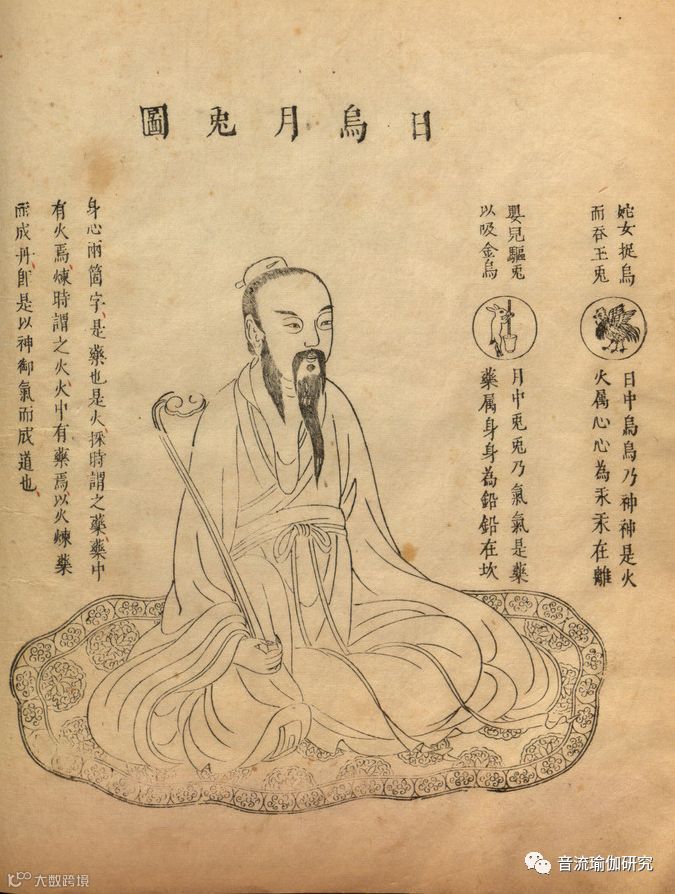 日烏月兎圖
姹女捉烏
而吞玉兎
日中烏烏乃神神是火
火属心心為汞汞在離
嬰兒驅兎
以吸金烏
月中兎兎乃氣氣是藥
藥属身身為鉛鉛在坎
身心兩箇字是藥也是火採時謂之藥藥中
有火焉煉時謂之火火中有藥焉以火煉藥
而成丹即是以神御氣而成道也
大数跨境
音流瑜伽研究